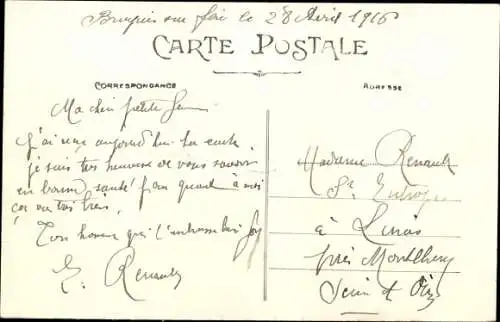 le 28 Avril 1916
CARTE POSTALE
CORRESPONDANCE
ADRESSE
Ma chère petite
J'ai reçu aujourd'hui ta carte
je suis très heureux de vous savoir
en bonne santé pour quant à moi
ça va très bien
Ton homme qui t'embrasse bien fort
E. Renault
Madame Renault
à Linas
près Montlhéry
Seine et Oise